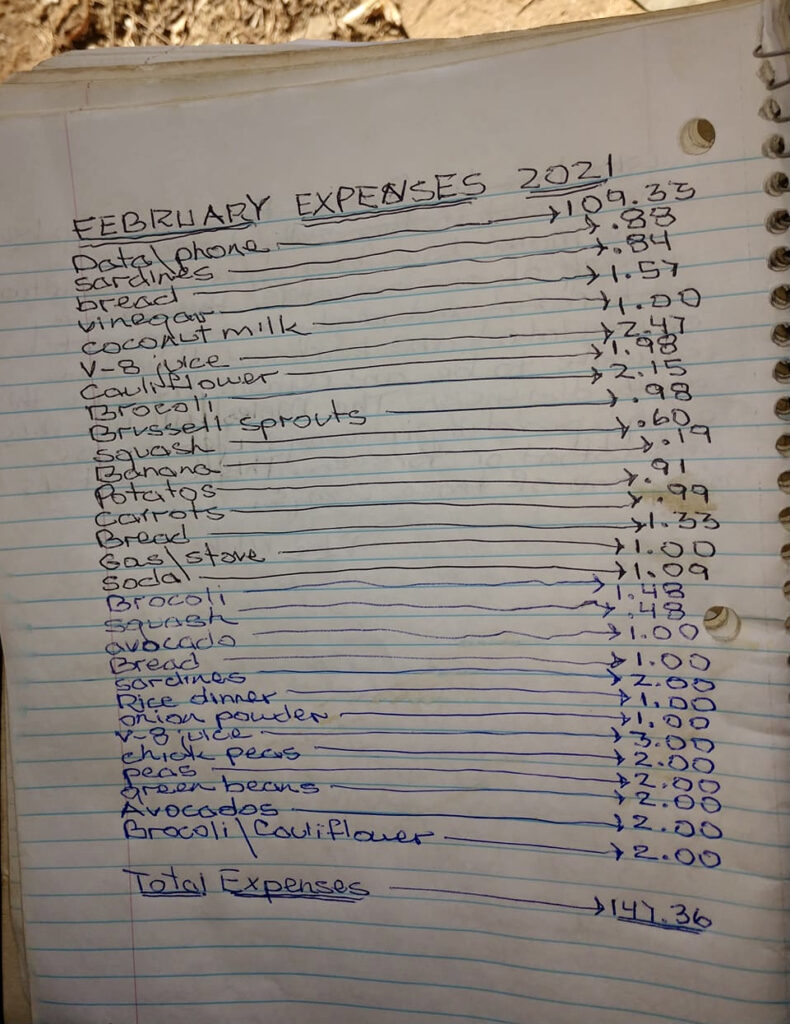 FEBRUARY EXPENSES 2021
Data\phone 109.33
sardines .88
bread .84
vinegar 1.57
coconut milk 1.00
V-8 juice 2.47
Cauliflower 1.98
Brocoli 2.15
Brussell sprouts .98
squash .60
Banana .19
Potatos .91
carrots .99
Bread 1.33
Gas\stove 1.00
Soda 1.09
Brocoli 1.48
squash .48
avocado 1.00
Bread 1.00
sardines 2.00
Rice dinner 1.00
onion powder 1.00
V-8 juice 3.00
chick peas 2.00
peas 2.00
green beans 2.00
Avocados 2.00
Brocoli\Cauliflower 2.00
Total Expenses 147.36